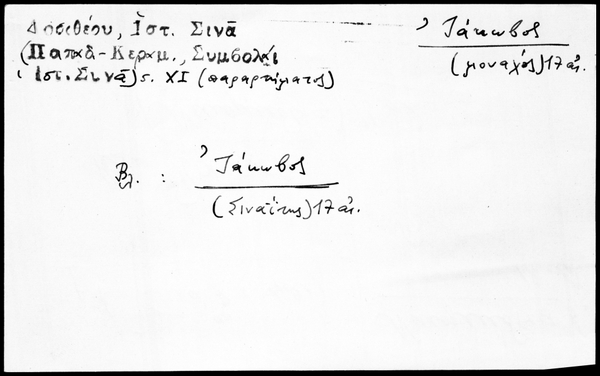 Δοσιθέου, Ἱστ. Σινᾶ
(Παπαδ-Κεραμ., Συμβολαὶ
Ἱστ. Σινᾶ) s. XI (παραρτήματος)
Ἰάκωβος
(μοναχός) 17 αἰ.
Βλ. : Ἰάκωβος
(Σιναΐτης) 17 αἰ.